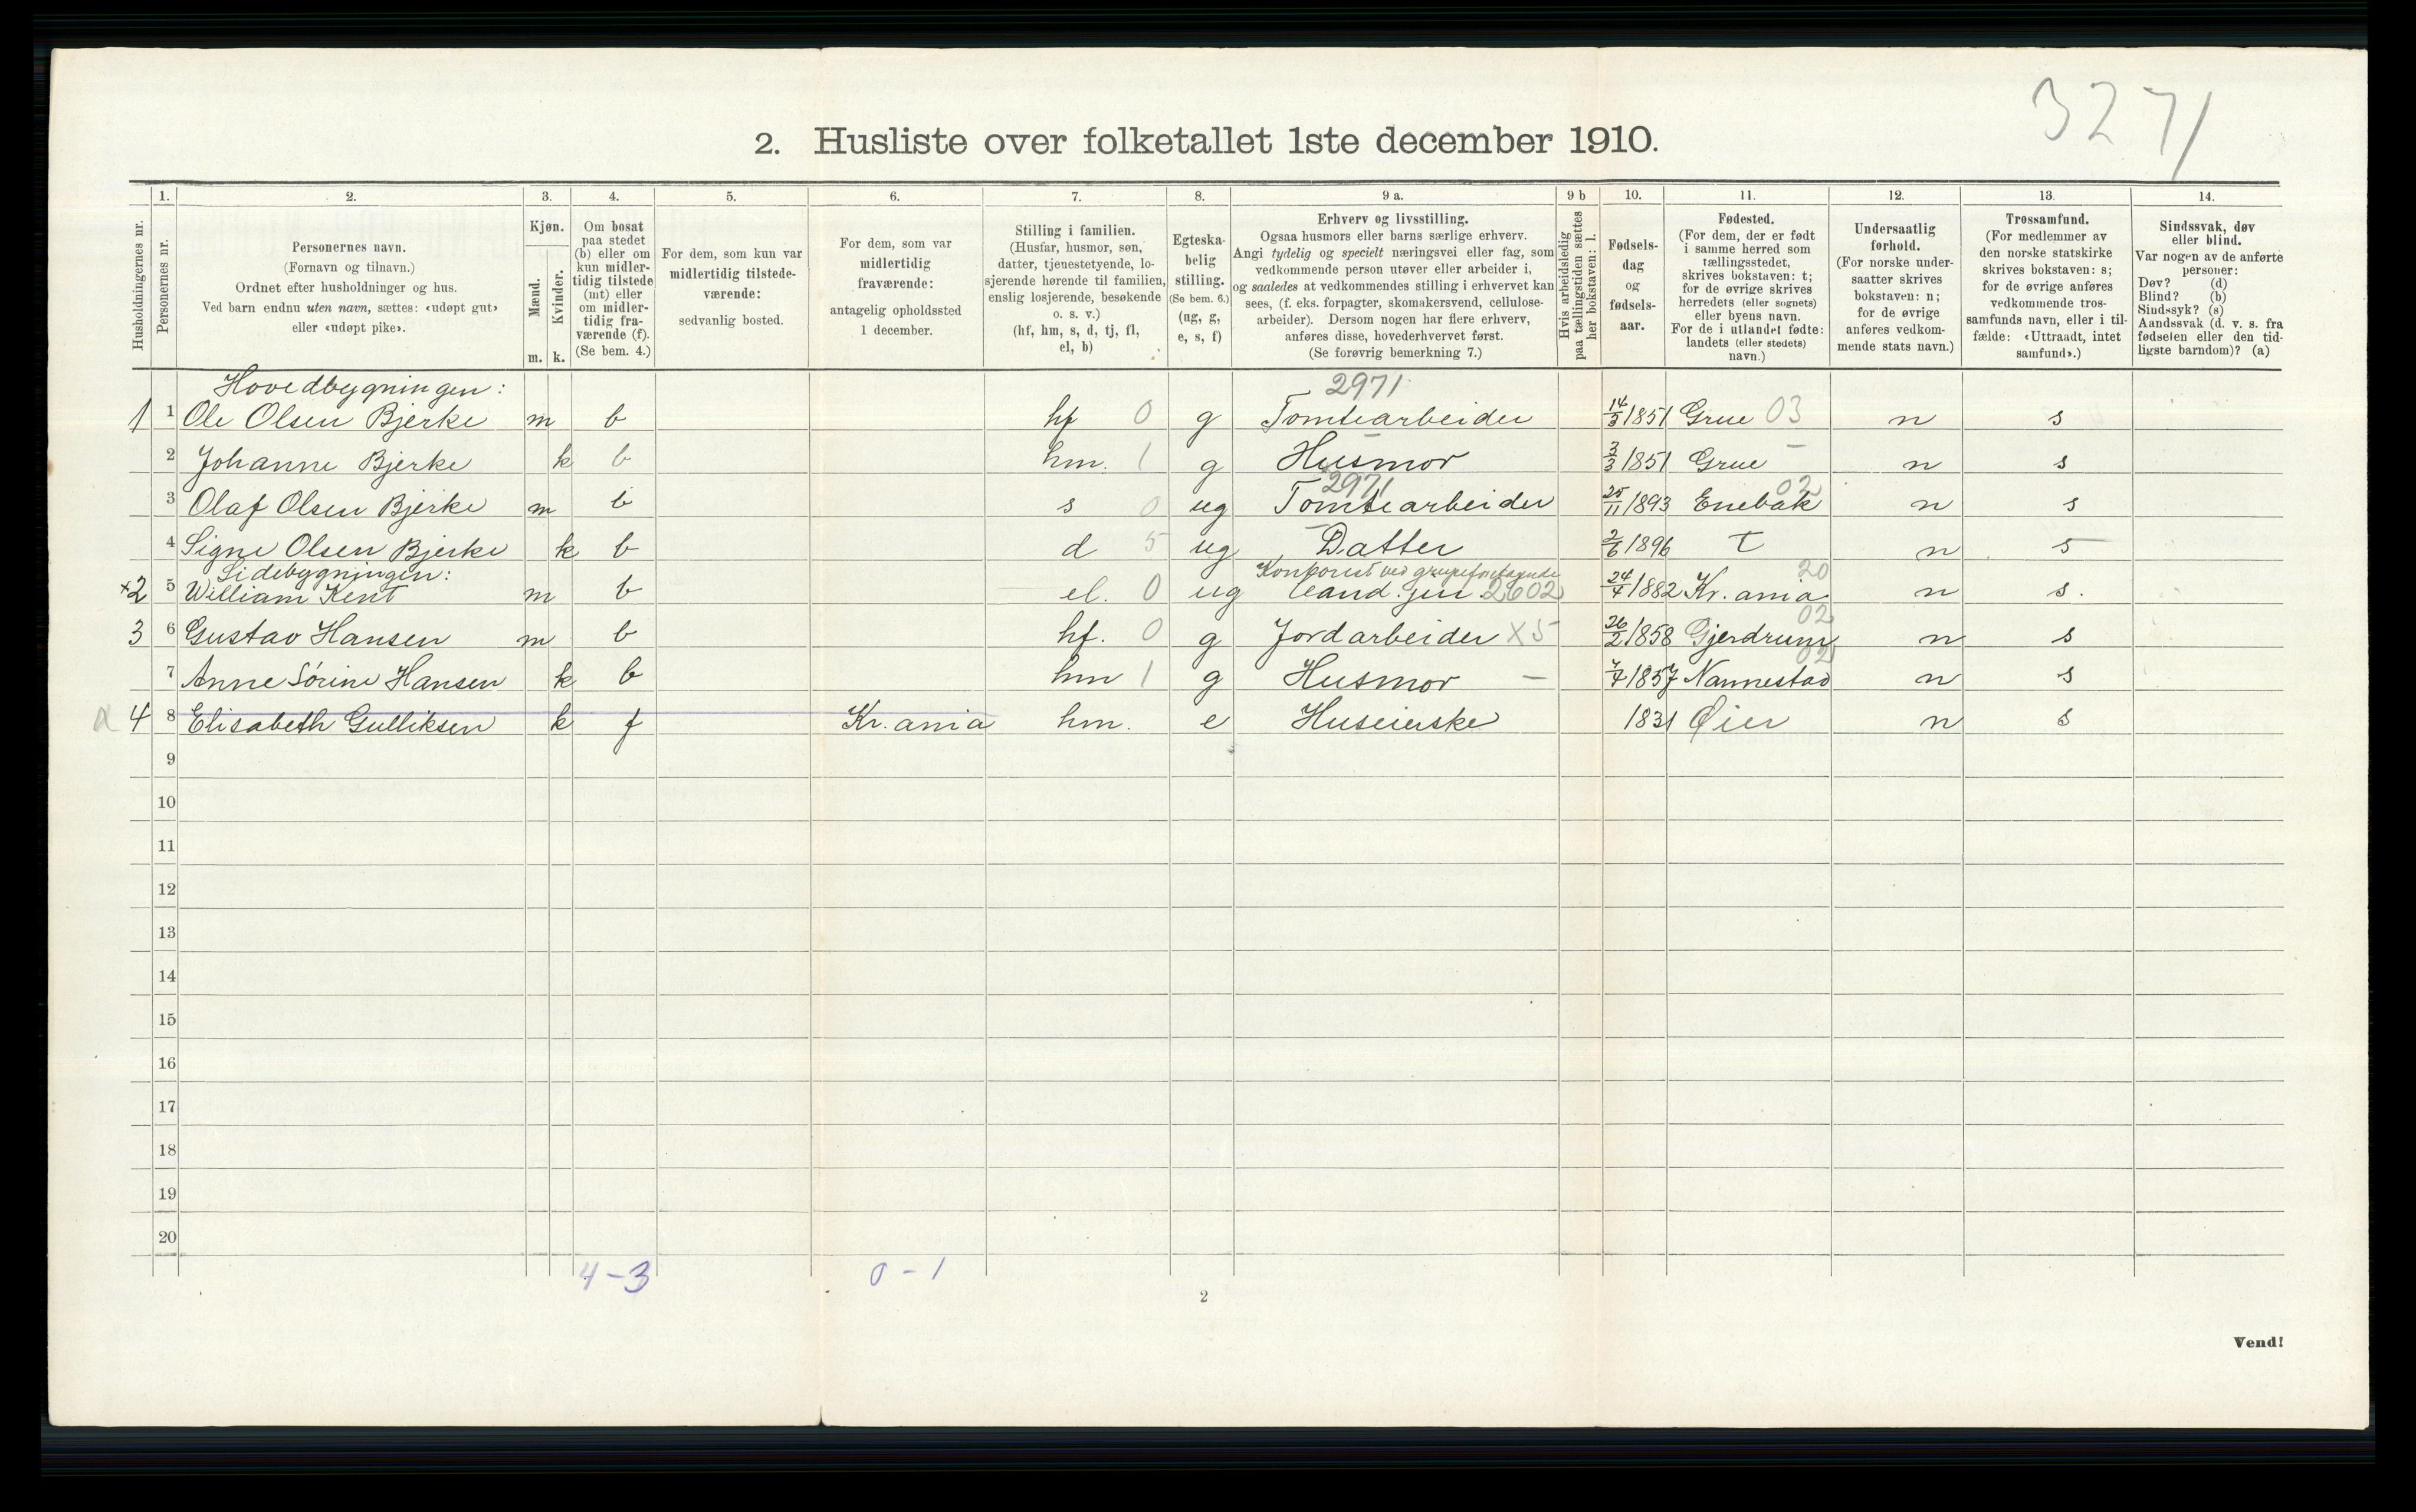 3271
2. Husliste over folketallet 1ste december 1910.
1. 2. 3. 4. 5. 6. 7. 8. 9 a. 9 b 10. 11. 12. 13. 14.
Husholdningernes nr.
Personernes nr.
Personernes navn.
(Fornavn og tilnavn.)
Ordnet efter husholdninger og hus.
Ved barn endnu uten navn, sættes: «udøpt gut»
eller «udøpt pike».
Kjøn.
Mænd.
Kvinder.
m. k.
Om bosat
paa stedet
(b) eller om
kun midler-
tidig tilstede
(mt) eller
om midler-
tidig fra-
værende (f).
(Se bem. 4.)
For dem, som kun var
midlertidig tilstede-
værende:
sedvanlig bosted.
For dem, som var
midlertidig
fraværende:
antagelig opholdssted
1 december.
Stilling i familien.
(Husfar, husmor, søn,
datter, tjenestetyende, lo-
sjerende hørende til familien,
enslig losjerende, besøkende
o. s. v.)
(hf, hm, s, d, tj, fl,
el, b)
Egteska-
belig
stilling.
(Se bem. 6.)
(ug, g,
e, s, f)
Erhverv og livsstilling.
Ogsaa husmors eller barns særlige erhverv.
Angi tydelig og specielt næringsvei eller fag, som
vedkommende person utøver eller arbeider i,
og saaledes at vedkommendes stilling i erhvervet kan
sees, (f. eks. forpagter, skomakersvend, cellulose-
arbeider). Dersom nogen har flere erhverv,
anføres disse, hovederhvervet først.
(Se forøvrig bemerkning 7.)
Hvis arbeidsledig
paa tællingstiden sættes
her bokstaven: l.
Fødsels-
dag
og
fødsels-
aar.
Fødested.
(For dem, der er født
i samme herred som
tællingsstedet,
skrives bokstaven: t;
for de øvrige skrives
herredets (eller sognets)
eller byens navn.
For de i utlandet fødte:
landets (eller stedets)
navn.)
Undersaatlig
forhold.
(For norske under-
saatter skrives
bokstaven: n;
for de øvrige
anføres vedkom-
mende stats navn.)
Trossamfund.
(For medlemmer av
den norske statskirke
skrives bokstaven: s;
for de øvrige anføres
vedkommende tros-
samfunds navn, eller i til-
fælde: «Uttraadt, intet
samfund».)
Sindssvak, døv
eller blind.
Var nogen av de anførte
personer:
Døv? (d)
Blind? (b)
Sindssyk? (s)
Aandssvak (d. v. s. fra
fødselen eller den tid-
ligste barndom)? (a)
Hovedbygningen: 2971
1 1 Ole Olsen Bjerke m b hf 0 g Tomtearbeider 14/5 1851 Grue 03 n s
2 Johanne Bjerke k b hm. 1 g Husmor — 3/3 1851 Grue — n s
2971 02
3 Olaf Olsen Bjerke m b s 0 ug Tomtearbeider 25/11 1893 Enebak n s
4 Signe Olsen Bjerke k b d 5 ug Datter 2/6 1896 t n s
Sidebygningen: 20
×2 5 William Kent m b el. 0 ug Cand. jur. 2602 24/4 1882 Kr.ania n s.
02
3 6 Gustav Hansen m b hf. 0 g Jordarbeider X5 26/2 1858 Gjerdrum n s
02
7 Anne Sørine Hansen k b hm 1 g Husmor — 7/4 1857 Nannestad n s
a 4 8 Elisabeth Gulliksen k f Kr.ania hm. e Huseierske 1831 Øier n s
9
10
11
12
13
14
15
16
17
18
19
20
4-3 0-1
2
Vend!